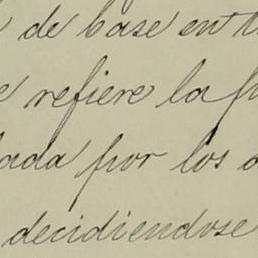 de base en
refiere la
por los
decidiendose